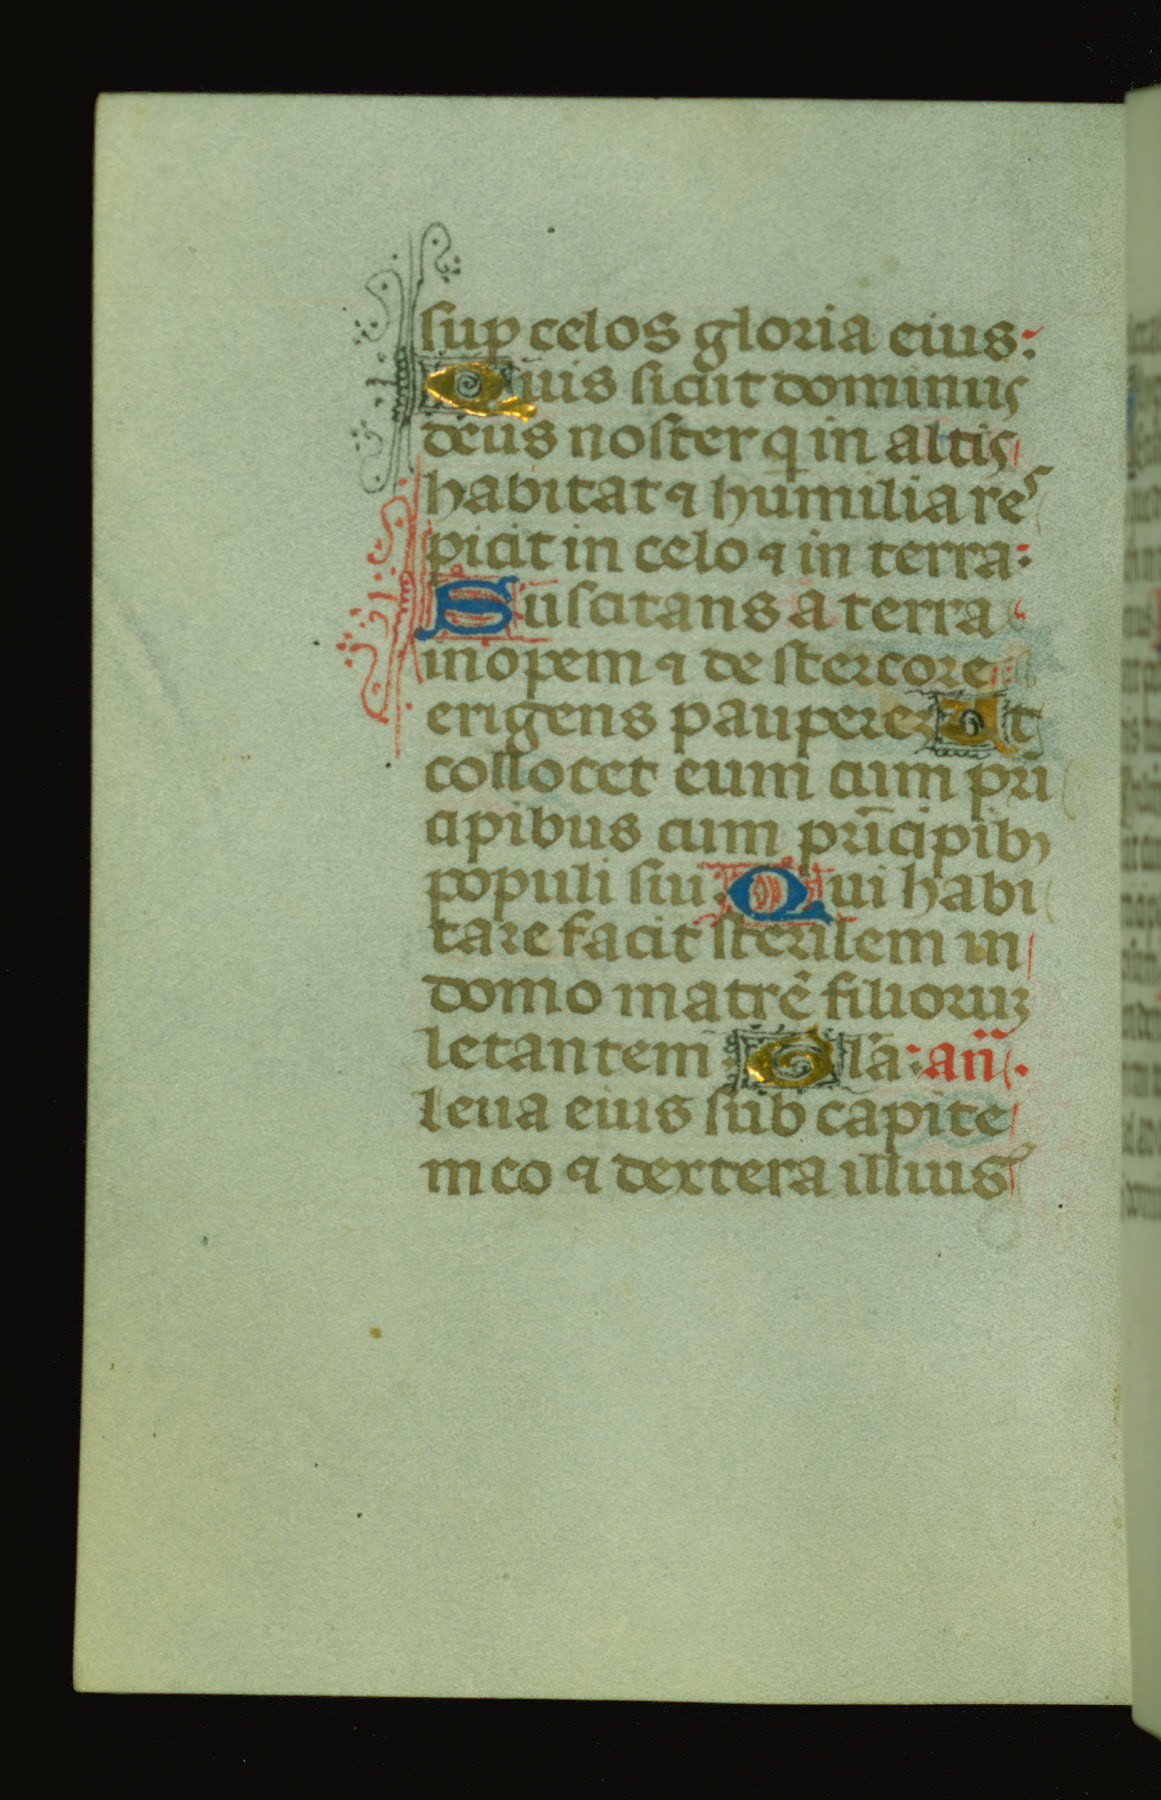 sup celos gloria eius:
Quis sicut dominus
deus noster q in altis
habitat ⁊ humilia res
picit in celo ⁊ in terra:
Suscitans a terra
inopem ⁊ de stercore
erigens pauperez Ut
collocet eum cum pri
cipibus cum prīcipibꝫ
populi sui. Qui habi
tare facit sterilem in
domo matrē filioruꝫ
letantem Gl̄a: an̄.
leua eius sub capite
meo ⁊ dextera illius